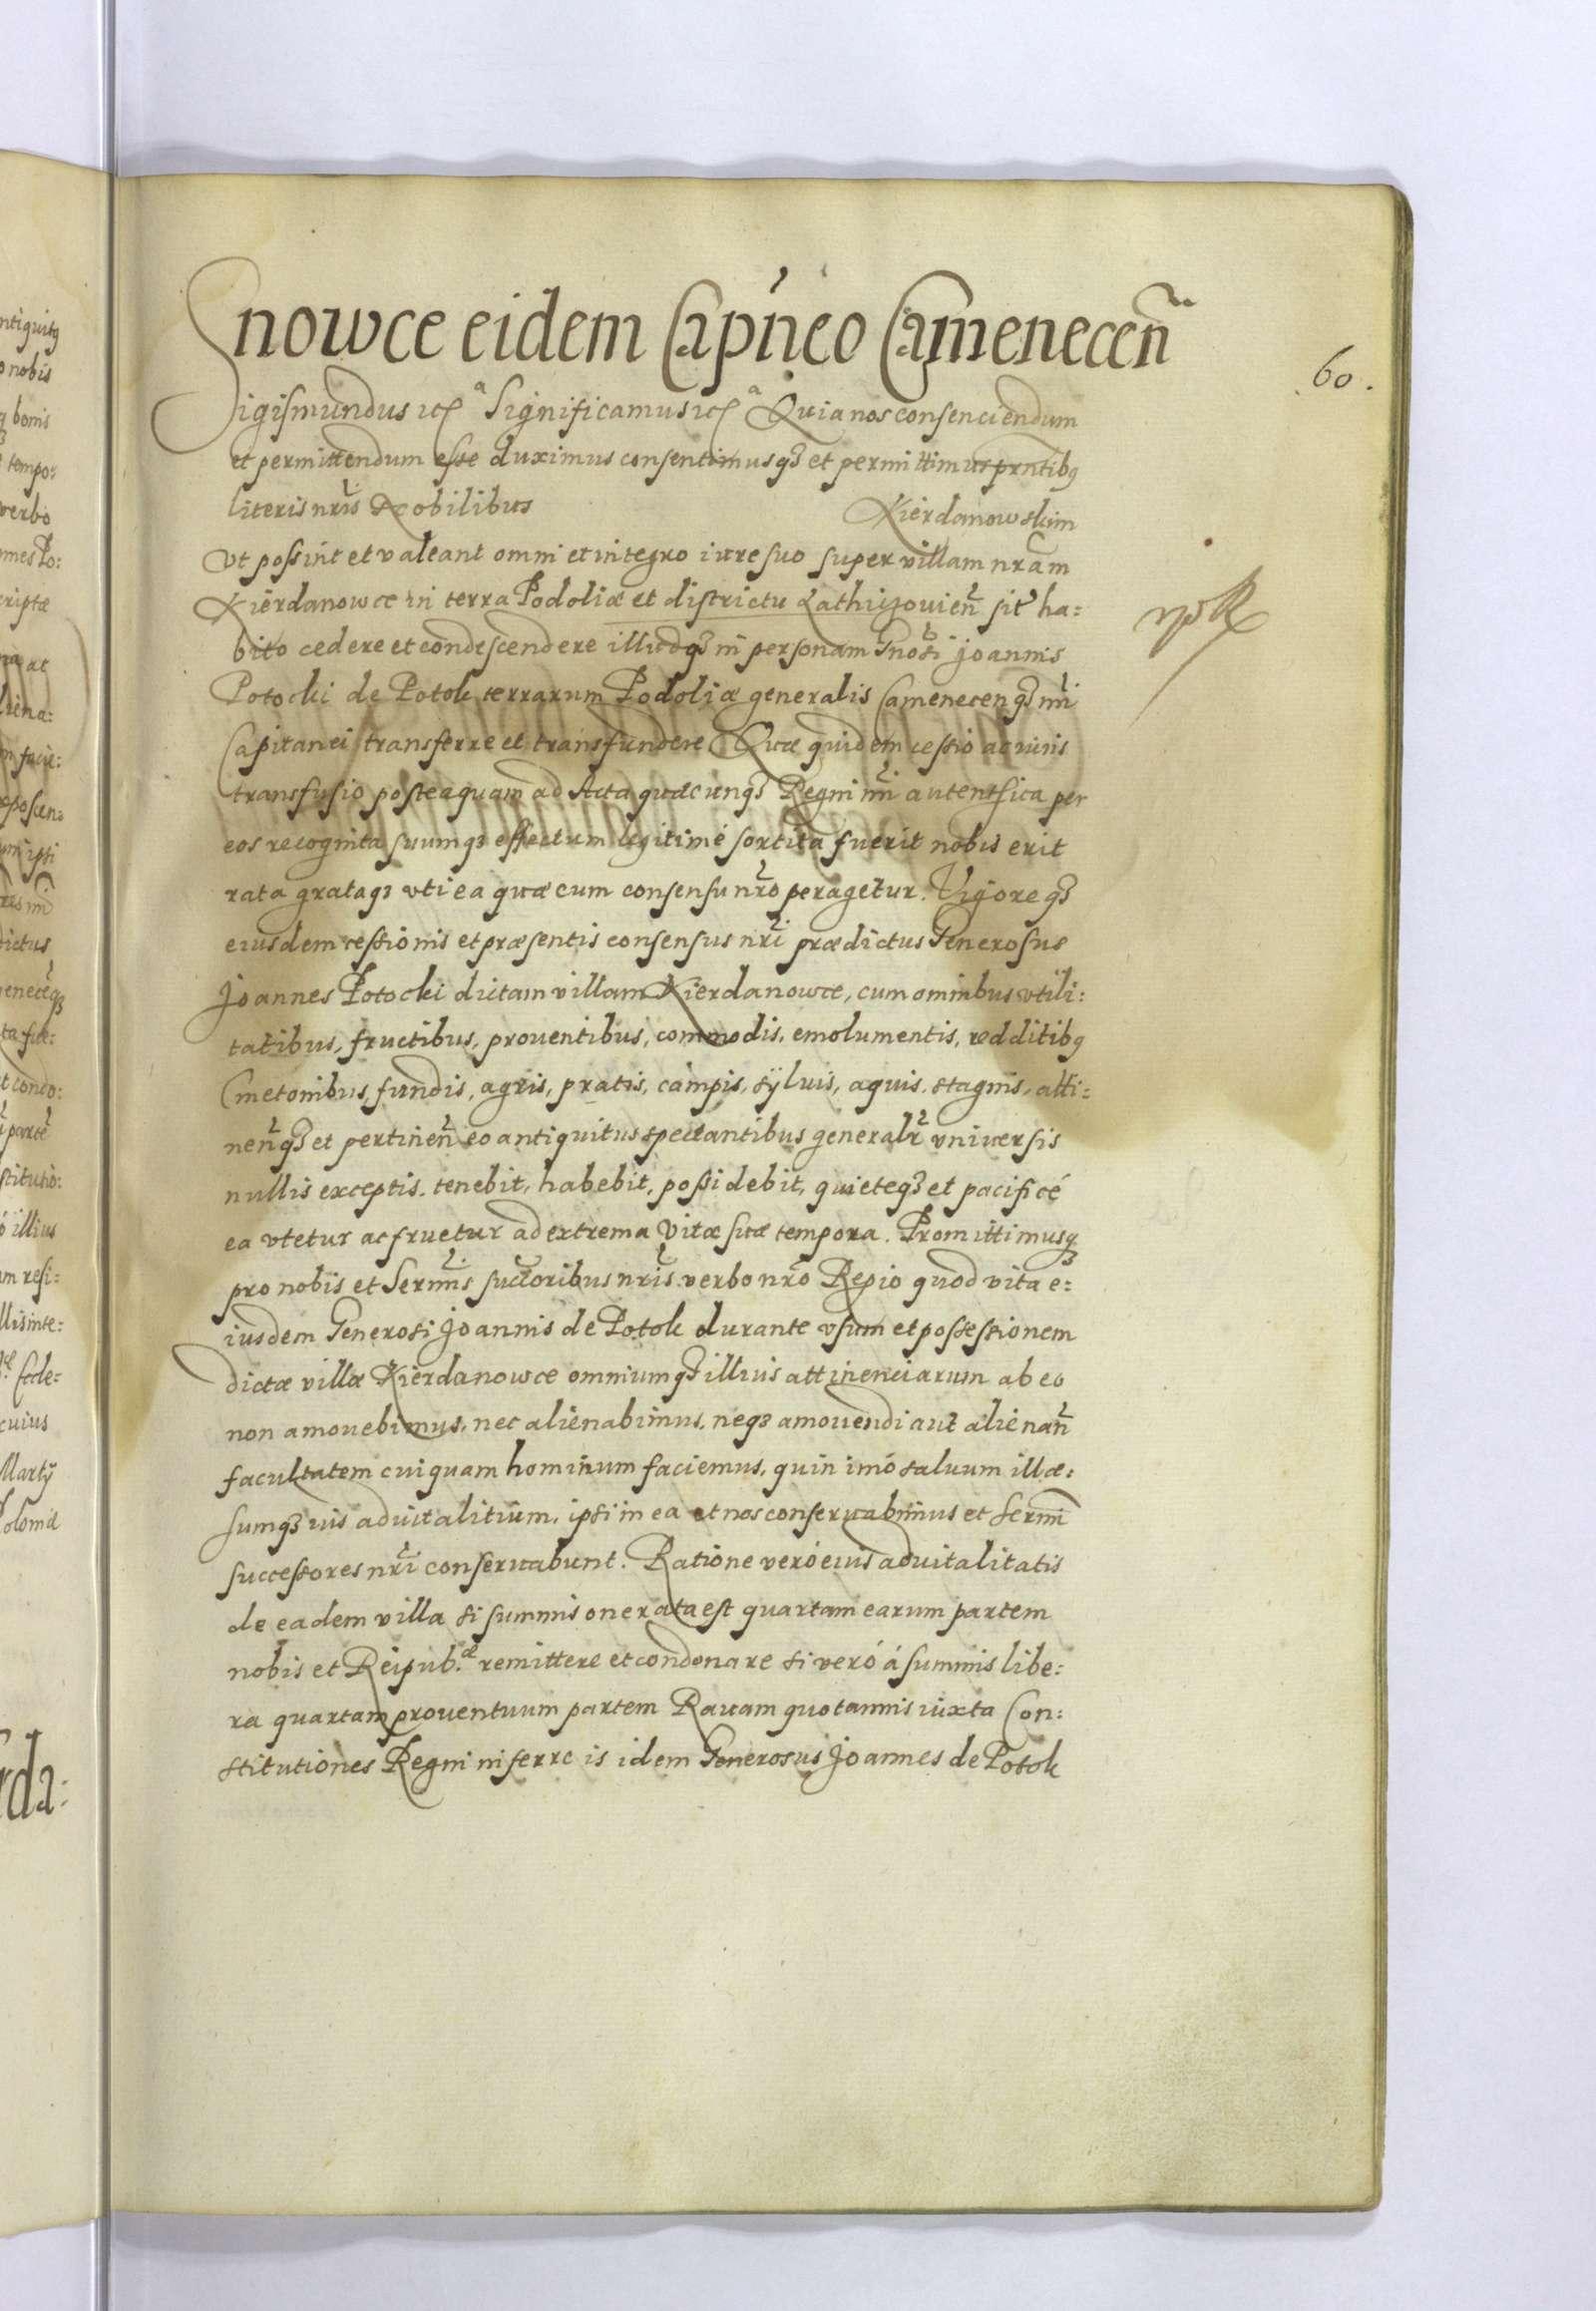 nowce eidem Cap̃neo Camenecen̄
60.
Sigismundus etc̃ᵃ Significamus etc̃ᵃ Quia nos consenciendum
et permittendum esse duximus consentimusq₃ et permittimus prñtibꝰ
literis nrĩs Nobilibus Kierdanowskim
Vt possint et valeant omni et integro iure suo super villam nrãm
Kierdanowce in terra Podoliæ et districtu Lathiczouien̄ sit ha=
bito cedere et condescendere illudq₃ in personam Gnõsi Joannis
Potocki de Potok terrarum Podoliæ generalis Camenecenq₃ nrĩ
Capitanei transferre et transfundere Quæ quidem cessio ac iuris
transfusio posteaquam ad Acta quæcunq₃ Regni nrĩ autentica per
eos recognita suumq₃ effectum legitimé sortita fuerit nobis erit
rata grataq₃ vti ea quæ cum consensu nrõ peragetur. Vigoreq₃
eiusdem cessionis et præsentis consensus nrĩ prædictus Generosus
Joannes Potocki dictam villam Kierdanowce, cum omnibus vtili=
tatibus, fructibus, prouentibus, commodis, emolumentis, redditibꝰ
Cmetonibus, fundis, agris, pratis, campis, sÿluis, aquis, stagnis, atti=
nen̄q₃ et pertinen̄ eo antiquitus spectantibus generalr̃ vniuersis
nullis exceptis. tenebit, habebit, possidebit, quieteq₃ et pacificé
ea vtetur ac fruetur ad extrema vitæ suæ tempora. Promittimusq₃
pro nobis et Sermĩs succ̃oribus nrĩs verbo nrõ Regio quod vita e=
iusdem Generosi Joannis de Potok durante vsum et possessionem
dictæ villæ Kierdanowce omniumq₃ illius attinenciarum ab eo
non amouebimus, nec alienabimus, neq₃ amouendi aut alienan̄
facultatem cuiquam hominum faciemus, quin imó saluum illæ=
sumq₃ ius aduitalitium, ipsi in ea et nos conseruabimus et Sermĩ
successores nrĩ conseruabunt. Ratione veró eius aduitalitatis
de eadem villa si summis onerata est quartam earum partem
nobis et Reipub.æ remittere et condonare si veró á summis libe=
ra quartam prouentuum partem Rauam quotannis iuxta Con=
stitutiones Regni inferre is idem Generosus Joannes de Potok